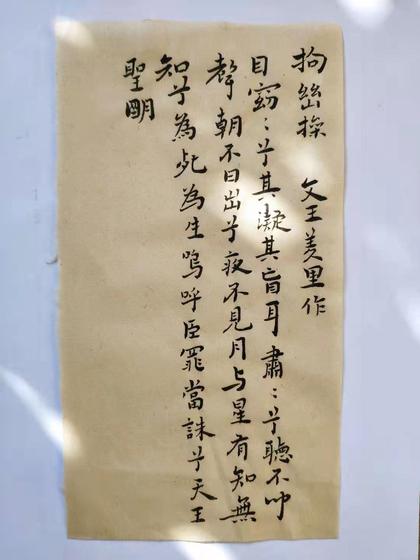 拘幽操 文王羑里作
目窈:兮其凝其盲耳肅:兮聽不聞
聲朝不日出兮夜不見月与星有知無
知兮為死為生嗚呼臣罪當誅兮天王
聖明